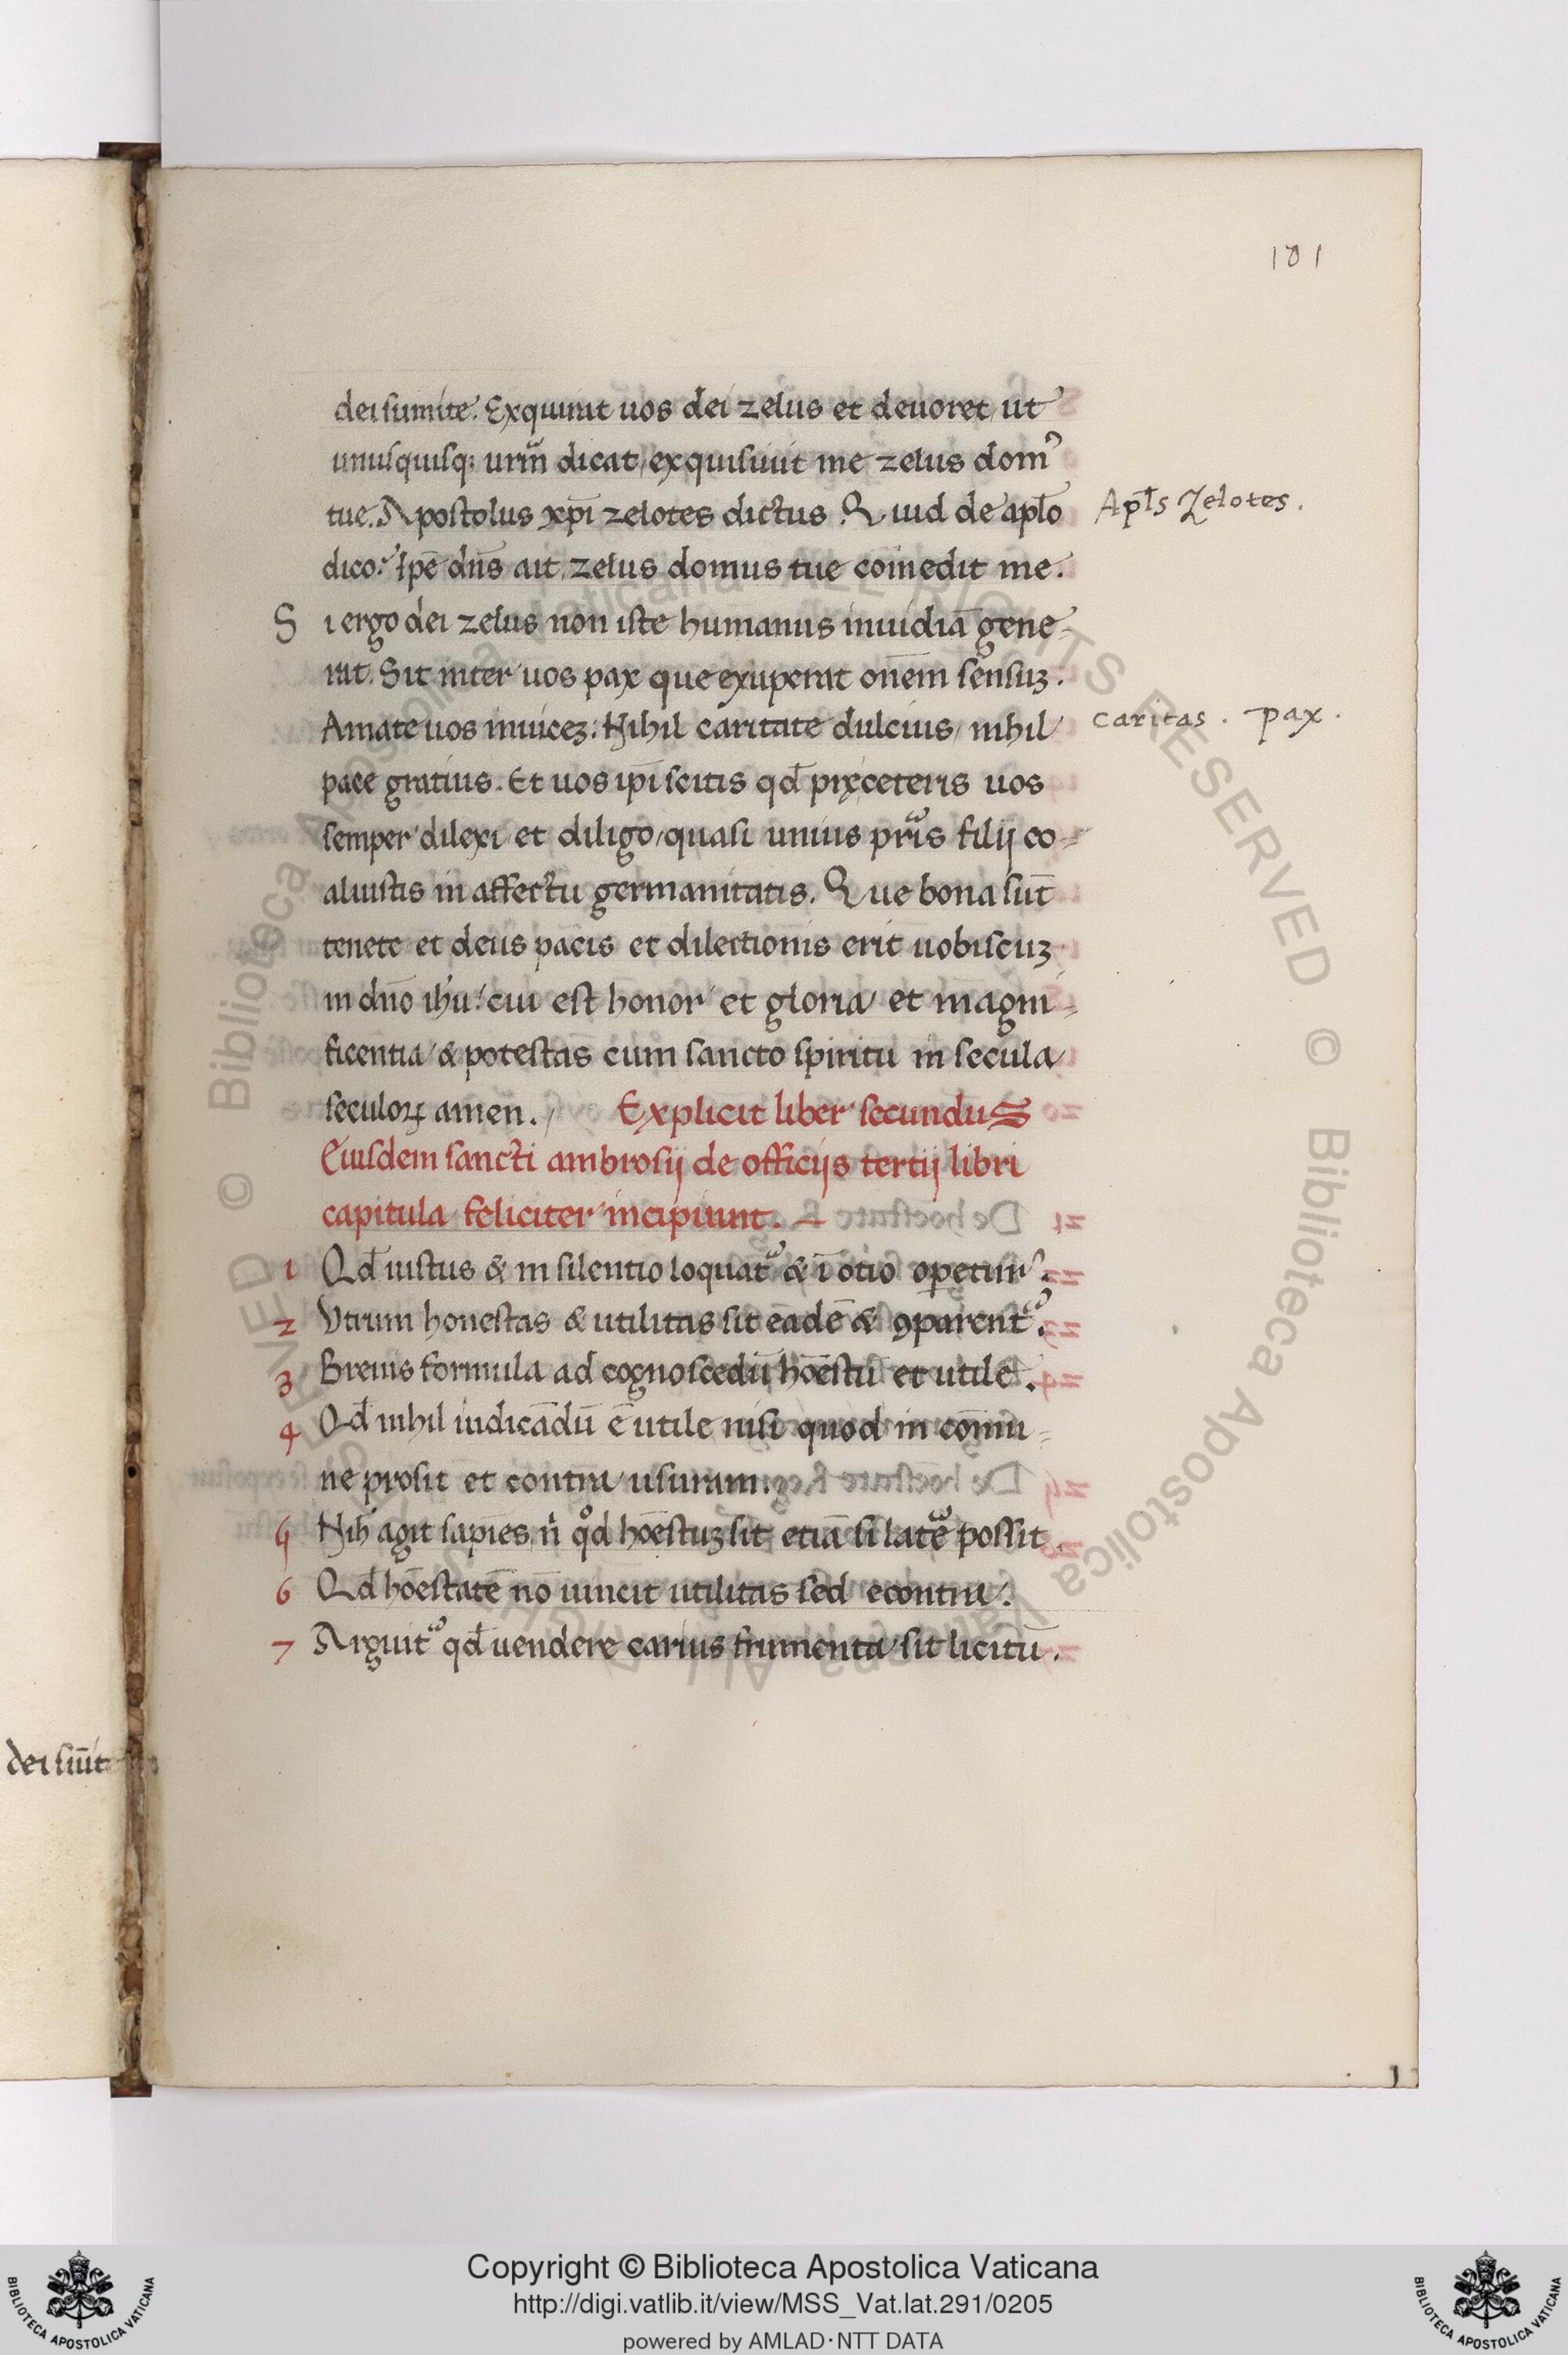 101
dei sumite. Exquirat uos dei zelus et deuoret, ut
unusquisq; urm̄ dicat, exquisiuit me zelus dom᷒
tue. Apostolus xp̄i zelotes dictus. Quid de ap̄lo
Apl̄s Zelotes.
dico? Ip̄e dn̄s ait, zelus domus tue comedit me.
Si ergo dei zelus non iste humanus inuidiā gene-
rat. Sit inter uos pax que exuperat on̄em sensuꝫ.
Amate uos inuiceꝫ. Nihil caritate dulcius, nihil
caritas. pax.
pace gratius. Et uos ip̄i scitis qd̄ pręceteris uos
semper dilexi et diligo, quasi unius pr̄is filij co-
aluistis in affectu germanitatis. Que bona sūt
tenete et deus pacis et dilectionis erit uobiscuꝫ
in dn̄o ih̄u! cui est honor et gloria et magni-
ficentia & potestas cum sancto spiritu in secula
seculoꝝ amen. Explicit liber secundus
Eiusdem sancti ambrosij de officijs tertij libri
capitula feliciter incipiunt.
1 Qd̄ iustus & in silentio loquat᷒ & ī otio operetur.
2 Vtrum honestas & utilitas sit eadē & ꝯparent᷒.
3 Breuis formula ad cognoscēdū hoēstū et utile.
4 Qd̄ nihil iudicādū ē utile nisi quod in comu-
ne prosit et contra usuram.
5 Nih̄ agit sapiēs, n̄ qd̄ hoēstuꝫ sit etiā si latē possit.
6 Qd̄ hoēstatē nō uincit utilitas sed econtra.
7 Arguit᷒ qd̄ uendere carius frumenta sit licitū.
dei sūit
Copyright © Biblioteca Apostolica Vaticana
http://digi.vatlib.it/view/MSS_Vat.lat.291/0205
powered by AMLAD·NTT DATA
BIBLIOTECA APOSTOLICA VATICANA
BIBLIOTECA APOSTOLICA VATICANA